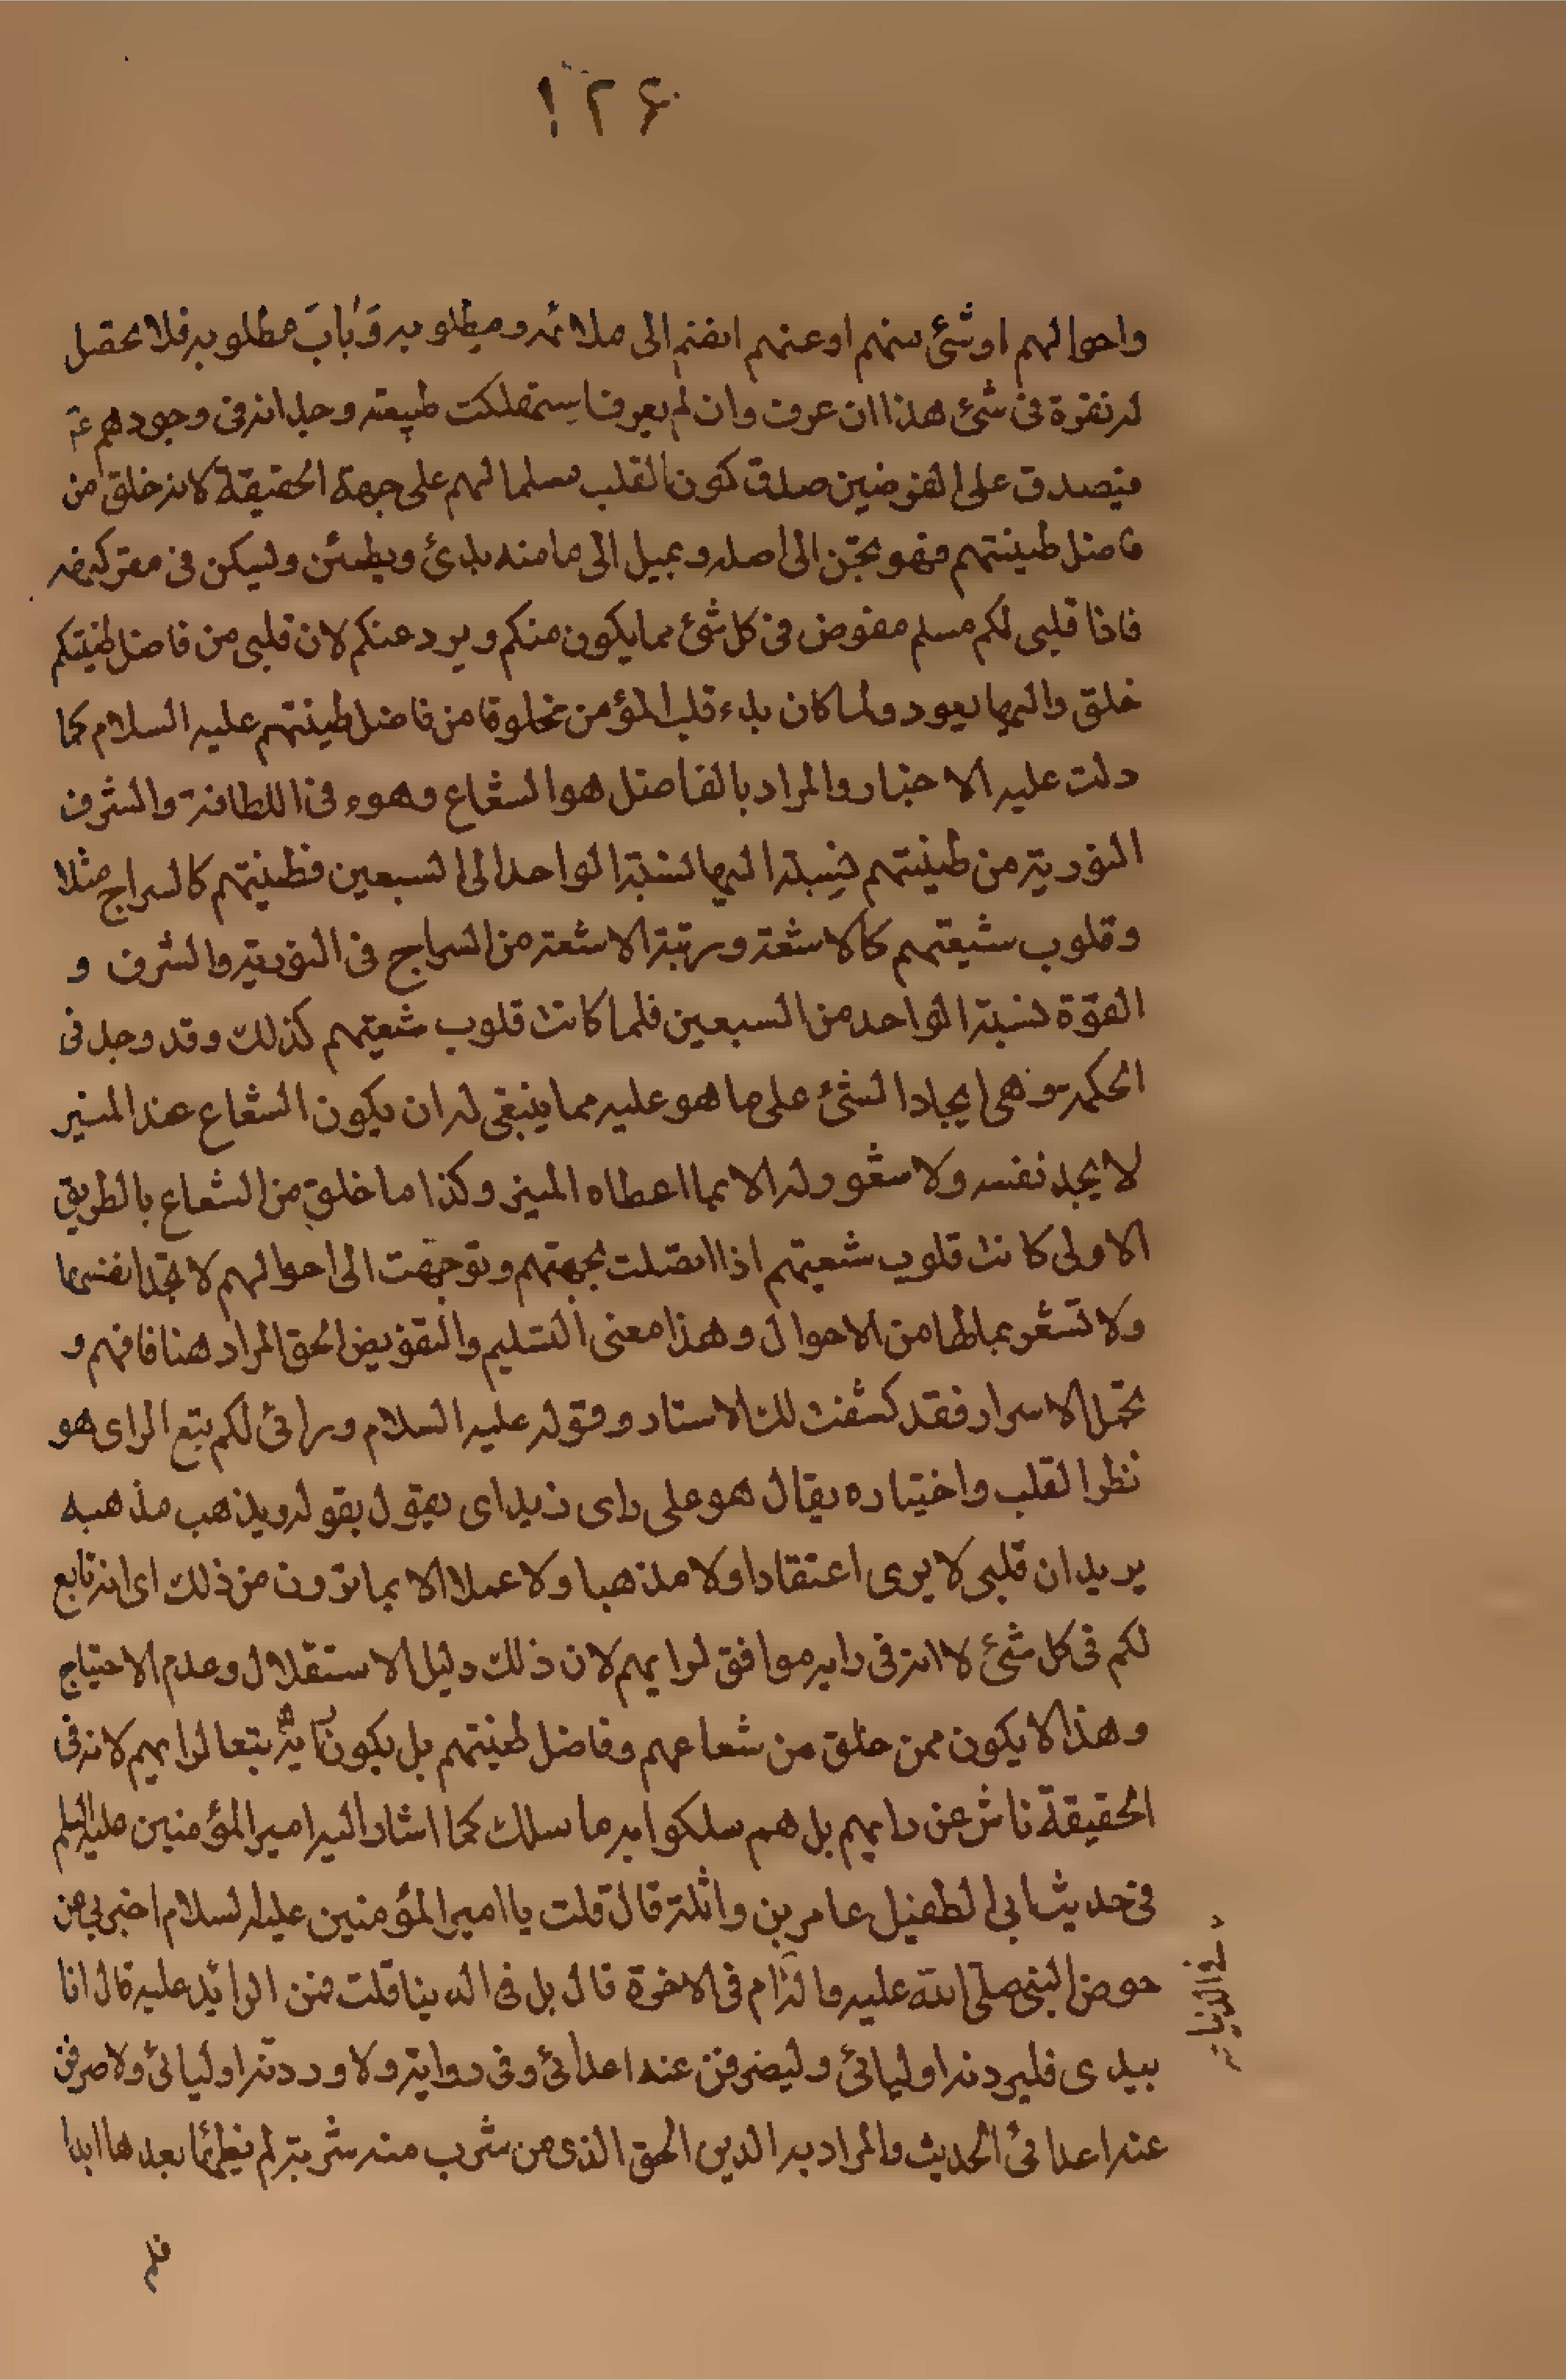 ١٢٤
واحوالهم اوشئ منهم اوعنهم انضم الى ملائمه ومطلوبه وباب مطلوبه فلا يحصل
له نفرة فى شئ هذا ان عرف وان لم يعرف استهلكت طبيعته وجدانه فى وجودهم
فيصدق على الفرضين صدق كون القلب مسلما لهم على جهة الحقيقة لانه خلق من
فاضل طينتهم فهو يحن الى اصله ويميل الى ما منه بدئ ويطمئن وليكن فى مقر
فاذا قلبى لكم مسلم مفوض فى كل شئ مما يكون منكم ويرد عنكم لان قلبى من فاضل طينتكم
خلق واليها يعود ولما كان بدء قلب المؤمن مخلوقا من فاضل طينتهم عليه السلام كما
دلت عليه الاخبار والمراد بالفاضل هو الشعاع وهو فى اللطافة والشرف
النورية من طينتهم نسبته اليها نسبة الواحد الى السبعين فطينتهم كالسراج مثلا
وقلوب شيعتهم كالاشعة ورتبة الاشعة من السراج فى النورية والشرف و
القوة نسبة الواحد من السبعين فلما كانت قلوب شيعتهم كذلك وقد وجد فى
الحكمة وهى ايجاد الشئ على ما هو عليه مما ينبغى له ان يكون الشعاع عند المنير
لا يجد نفسه ولا شعور له الا بما اعطاه المنير وكذا ما خلق من الشعاع بالطريق
الاولى كانت قلوب شيعتهم اذا اتصلت بجهتهم وتوجهت الى احوالهم لا تجد انفسها
ولا تشعر بمالها من الاحوال وهذا معنى التسليم والتفويض الحق المراد هنا فافهم و
تحمل الاسرار فقد كشفت لك الاستار وقوله عليه السلام ورائى لكم تبع الراى هو
نظر القلب واختياره يقال هو على راى زيد اى يقول بقوله ويذهب مذهبه
يريد ان قلبى لا يرى اعتقادا ولا مذهبا ولا عملا الا بما ترون من ذلك اى انه تابع
لكم فى كل شئ لا انه فى رايه موافق لرايهم لان ذلك دليل الاستقلال وعدم الاحتياج
وهذا لا يكون ممن خلق من شعاعهم وفاضل طينتهم بل يكون رايه تبعا لرايهم لانه فى
الحقيقة ناش عن رايهم بل هم سلكوا به ما سلك كما اشار اليه امير المؤمنين عليه السلم
فى حديث ابى الطفيل عامر بن واثلة قال قلت يا امير المؤمنين عليه السلام اخبرنى عن
حوض النبى صلى الله عليه واله ام فى الاخرة قال بل فى الدنيا قلت فمن الرائد عليه قال انا
فى الدنيا
بيدى فليردنه اوليائى وليصرفن عنه اعدائى وفى رواية ولاوردنه اوليائى ولاصرفن
عنه اعدائى الحديث والمراد به الدين الحق الذى من شرب منه شربة لم يظمأ بعدها ابدا
فلم